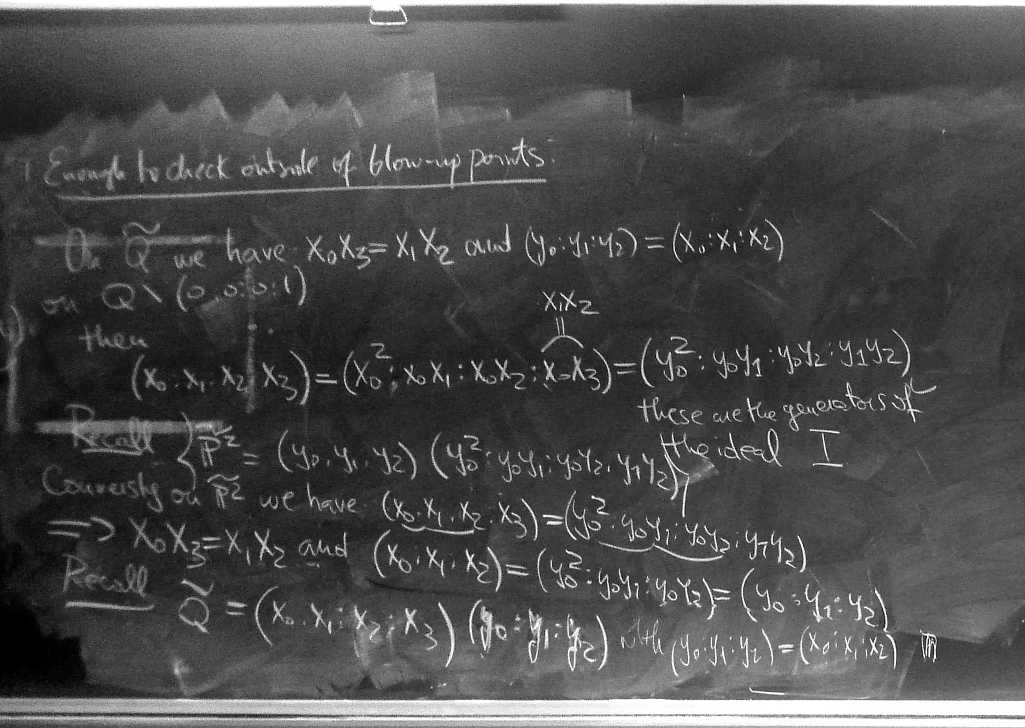 Enough to check outside of blow-up points:
On Q̃ we have X₀X₃=X₁X₂ and (y₀:y₁:y₂)=(X₀:X₁:X₂)
on Q\(0:0:0:1)
X₁X₂
then
(X₀:X₁:X₂:X₃)=(X₀²:X₀X₁:X₀X₂:X₀X₃)=(y₀²:y₀y₁:y₀y₂:y₁y₂)
these are the generators of
the ideal I
Recall P̃²=(y₀:y₁:y₂)(y₀²:y₀y₁:y₀y₂:y₁y₂)
Conversly on P̃² we have (X₀:X₁:X₂:X₃)=(y₀²:y₀y₁:y₀y₂:y₁y₂)
⇒ X₀X₃=X₁X₂ and (X₀:X₁:X₂)=(y₀²:y₀y₁:y₀y₂)=(y₀:y₁:y₂)
Recall
Q̃=(X₀:X₁:X₂:X₃)(y₀:y₁:y₂) with (y₀:y₁:y₂)=(X₀:X₁:X₂)